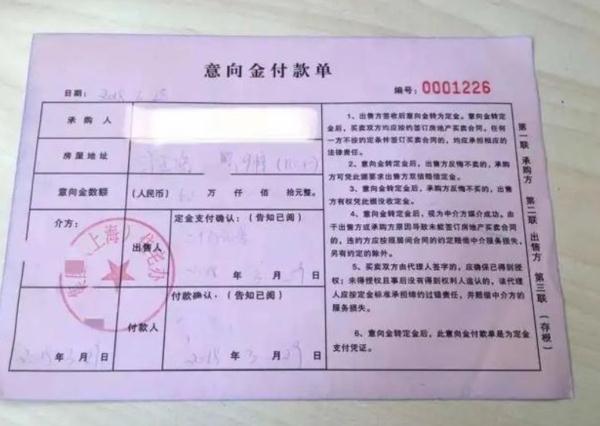 意向金付款单
日期：
编号：0001226
承购人
房屋地址
意向金数额
（人民币） 万 仟 佰 拾元整。
介方：
出售人
定金支付确认：（告知已阅）
年 月 日
付款人
付款确认：（告知已阅）
2015 年 3 月 29 日
年 月 日
（上海）
1、出售方签收后意向金转为定金。意向金转定
金后，买卖双方均应按约签订房地产买卖合同。任何
一方不按约定条件签订买卖合同的，均应承担相应的
法律责任。
2、意向金转定金后，出售方反悔不卖的，承购
方可凭此据要求出售方双倍赔偿定金。
3、意向金转定金后，承购方反悔不买的，出售
方有权凭此据没收定金。
4、意向金转定金后，视为中介方媒介成功。由
于出售方或承购方原因导致未能签订房地产买卖合同
的，违约方应按照居间合同的约定赔偿中介服务损失，
另有约定的除外。
5、买卖双方由代理人签字的，应确保已得到授
权；未得授权且事后没有得到权利人追认的，该代理
人应按定金标准承担缔约过错责任，并赔偿中介方的
服务损失。
6、意向金转定金后，此意向金付款单是为定金
支付凭证。
第一联 承购方 第二联 出售方 第三联（存根）